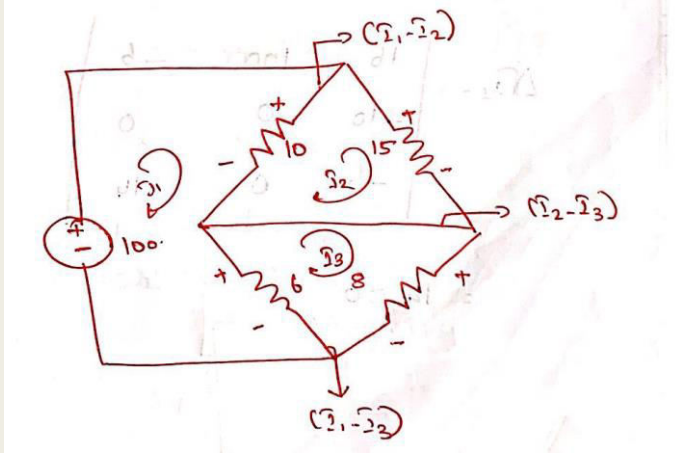 (I₁-I₂)
+
+
-
10
15
-
I₁
I₂
(I₂-I₃)
+
-
100.
I₃
+
6
8
+
-
-
(I₁-I₃)